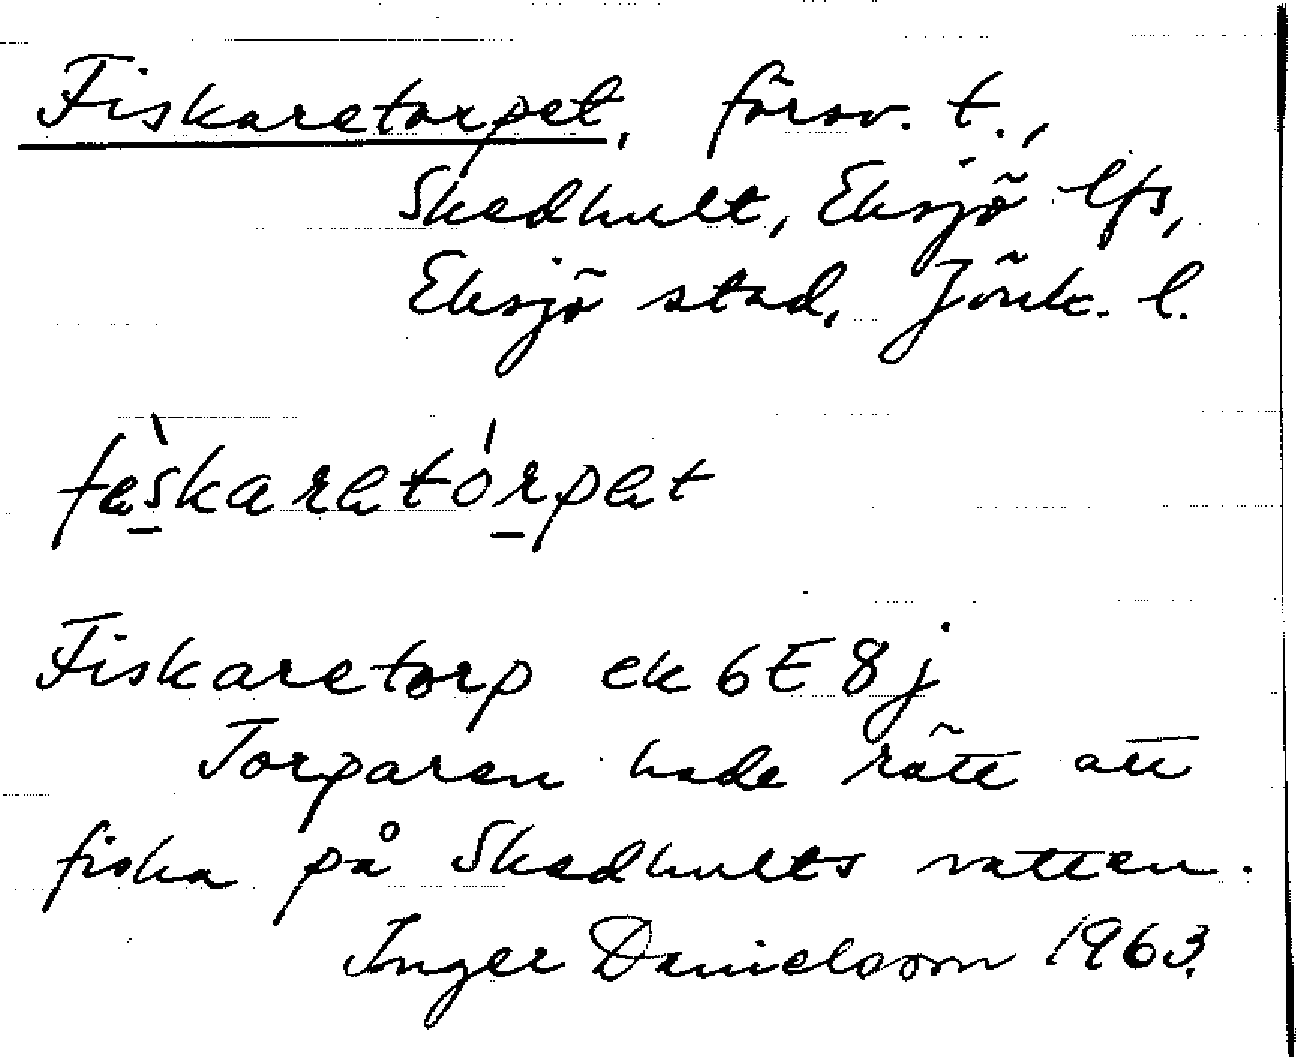 Fiskaretorpet, försv. t.,
Skedhult, Eksjö lfs,
Eksjö stad, Jönk. l.
fès̠karetór̠pet
Fiskaretorp ek 6E 8j
Torparen hade rätt att
fiska på Skedhults vatten.
Inger Danielsson 1963.